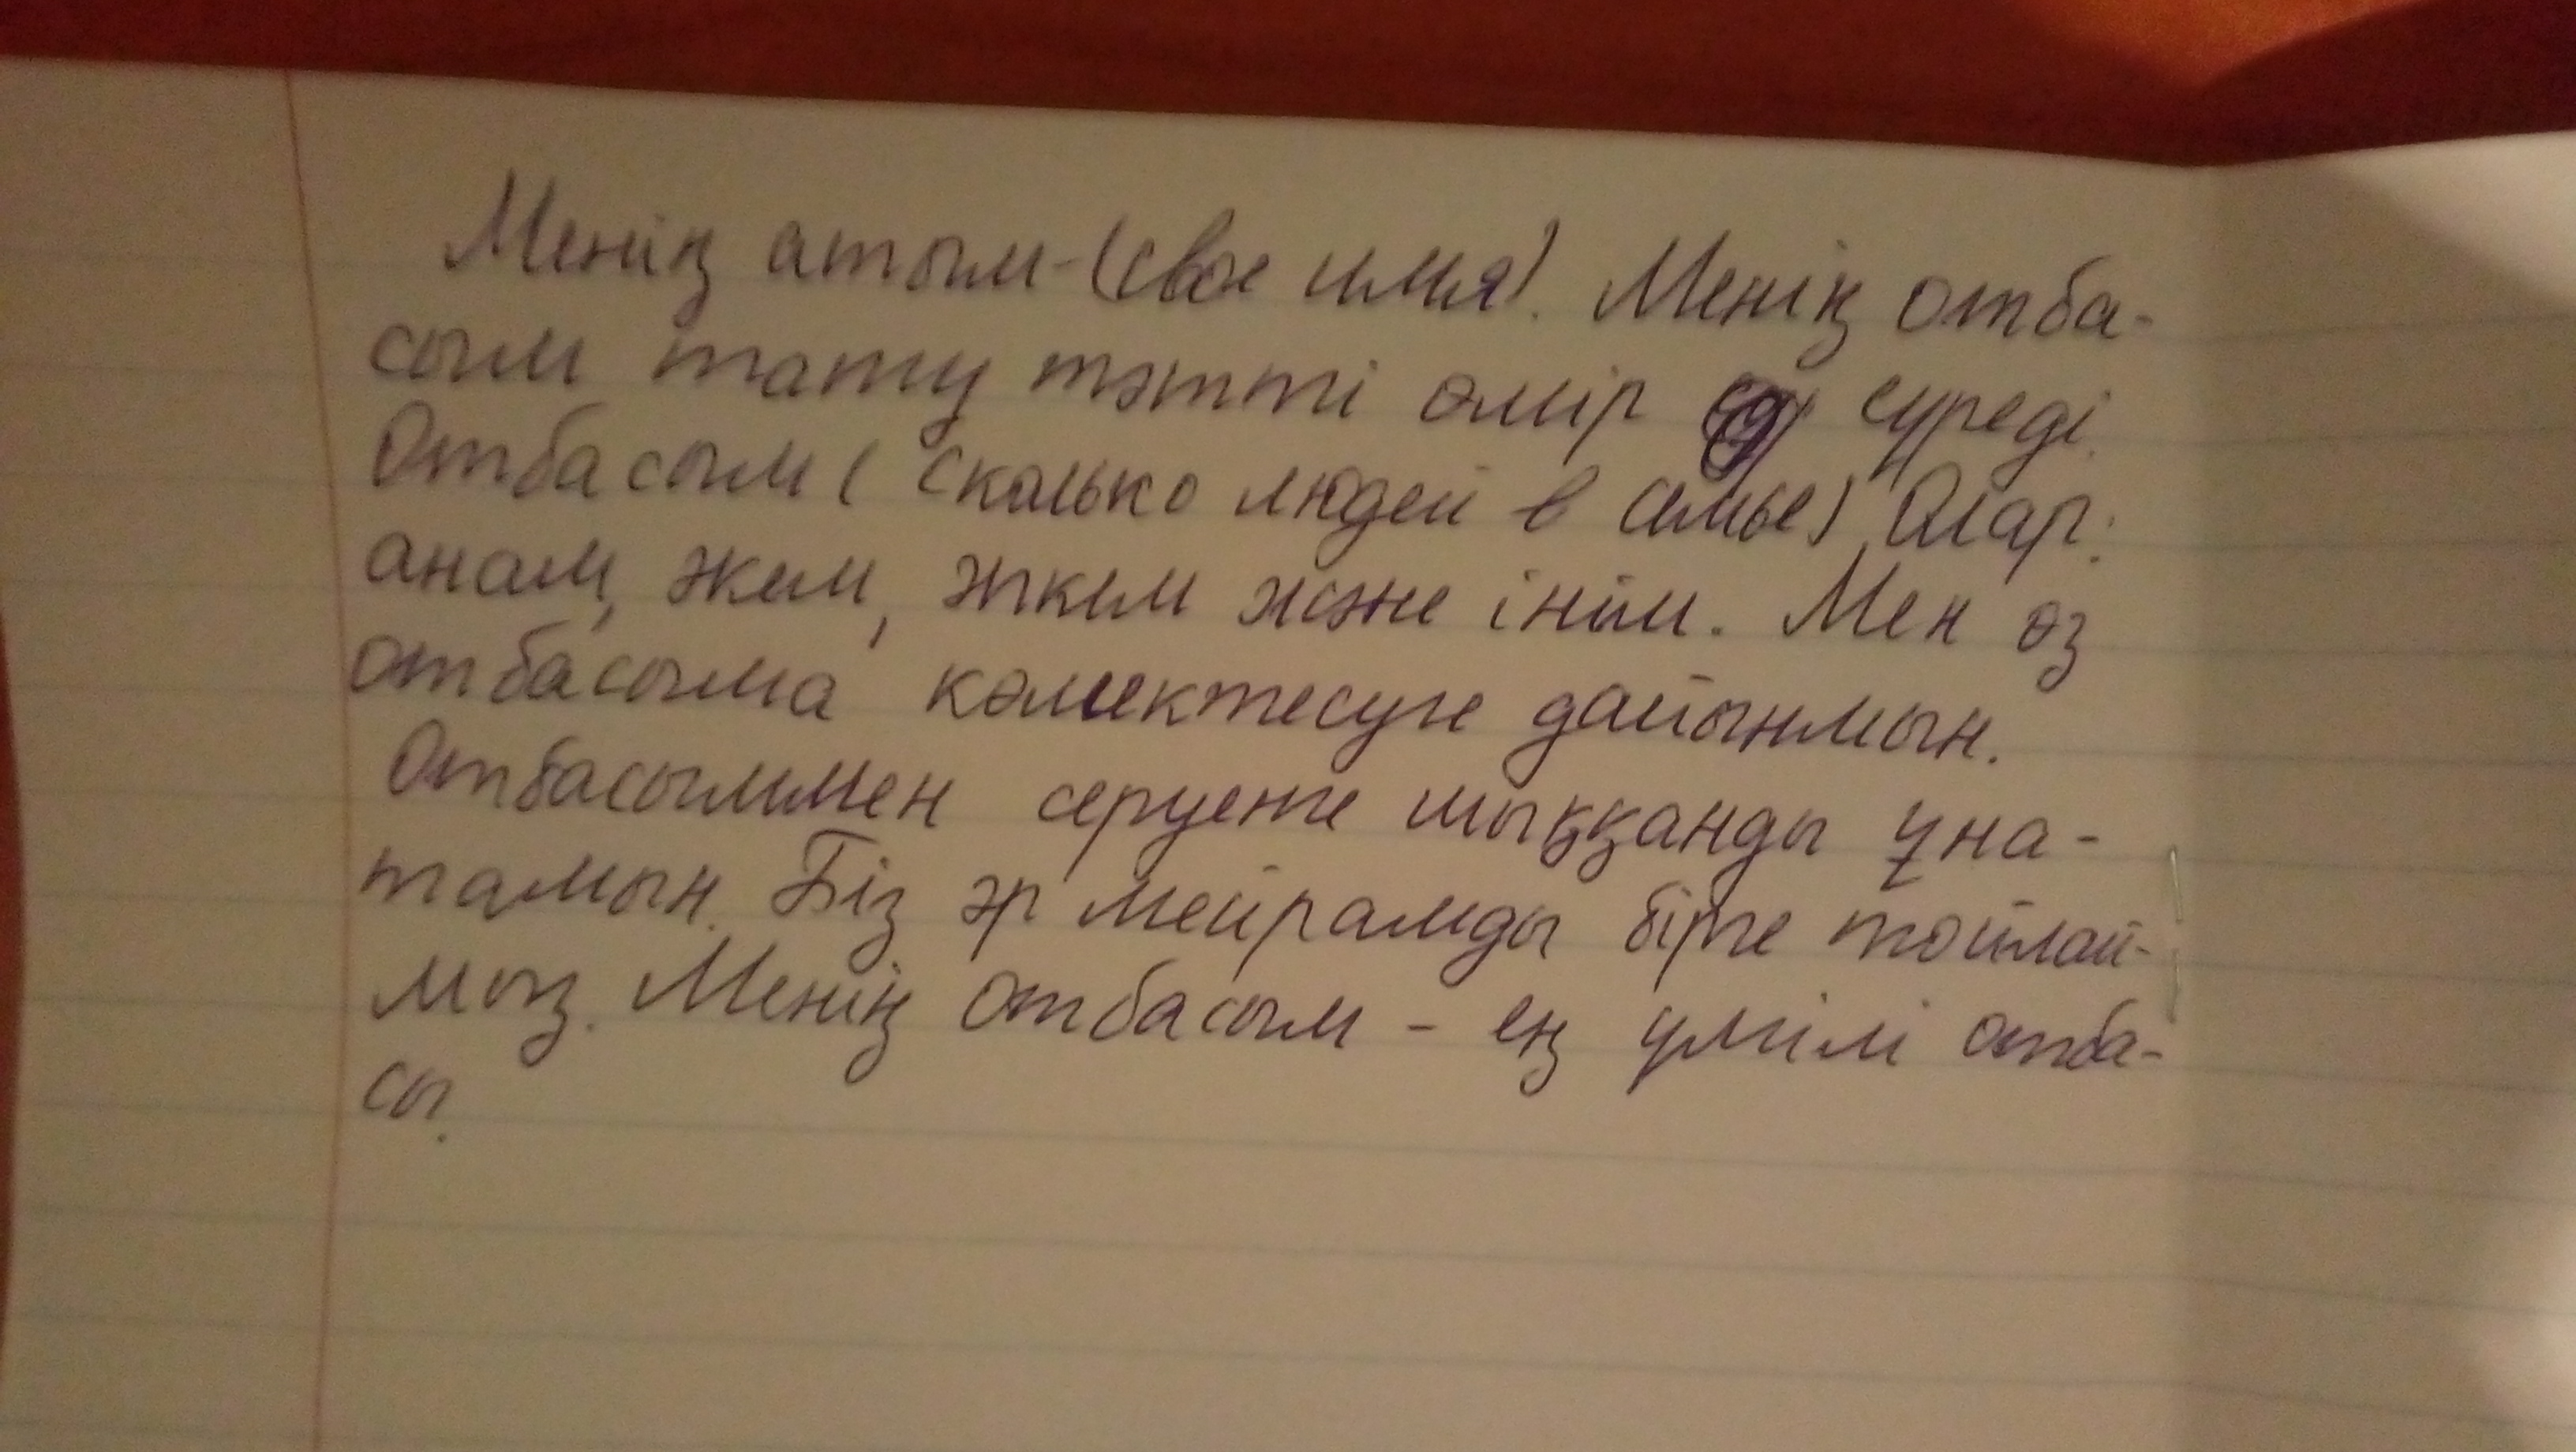 Менің атым-(свое имя). Менің отба-
сым тату тәтті өмір сүреді.
Отбасым (сколько людей в семье) Олар:
анам, әкем, әпкем және інім. Мен өз
отбасыма көмектесуге дайынмын.
Отбасыммен серуенге шыққанды ұна-
тамын. Біз әр мейрамды бірге тойлай-
мыз. Менің отбасым - ең үлгілі отба-
сы.